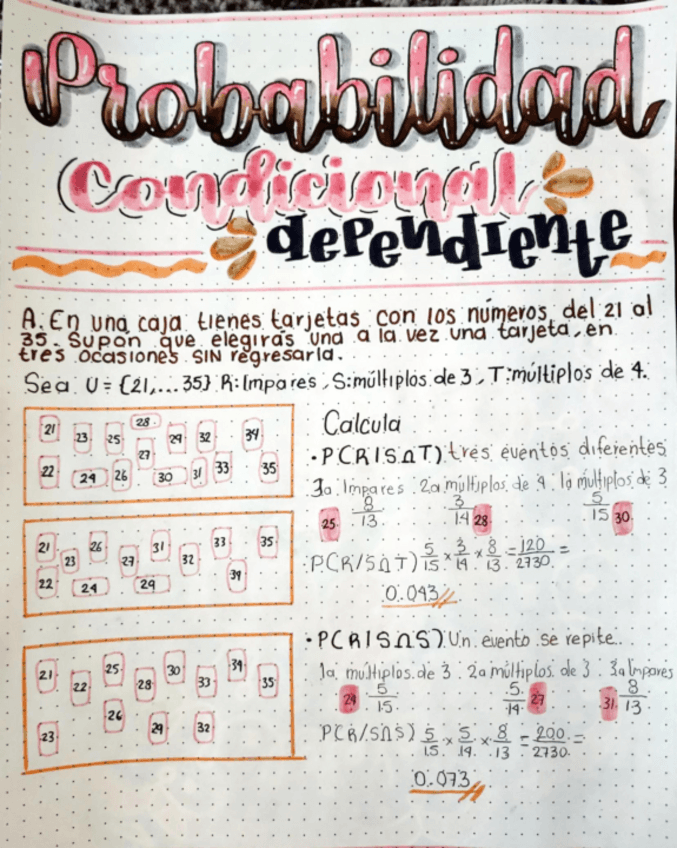 Probabilidad
Condicional
dependiente
A. En una caja tienes tarjetas con los números del 21 al
35. Supon que elegirás una a la vez una tarjeta, en
tres ocasiones SIN regresarla.
Sea U = {21,...35} R: Impares, S: múltiplos de 3, T: múltiplos de 4.
21 23 25 28 27 29 32 34
22 24 26 30 31 33 35
Calcula
• P(R|S∩T) tres eventos diferentes
3a Impares 2a múltiplos de 4 1a múltiplos de 3
25 8/13 3/14 28 5/15 30
21 23 26 27 31 32 33 35
22 24 29 34
P(R/S∩T) 5/15 × 3/14 × 8/13 = 120/2730 =
0.043
• P(R|S∩S) Un evento se repite
1a multiplos de 3 2a múltiplos de 3 3a Impares
24 5/15 5/14 27 31 8/13
21 22 25 28 30 33 34 35
23 26 29 32
P(R/S∩S) 5/15 × 5/14 × 8/13 = 200/2730 =
0.073